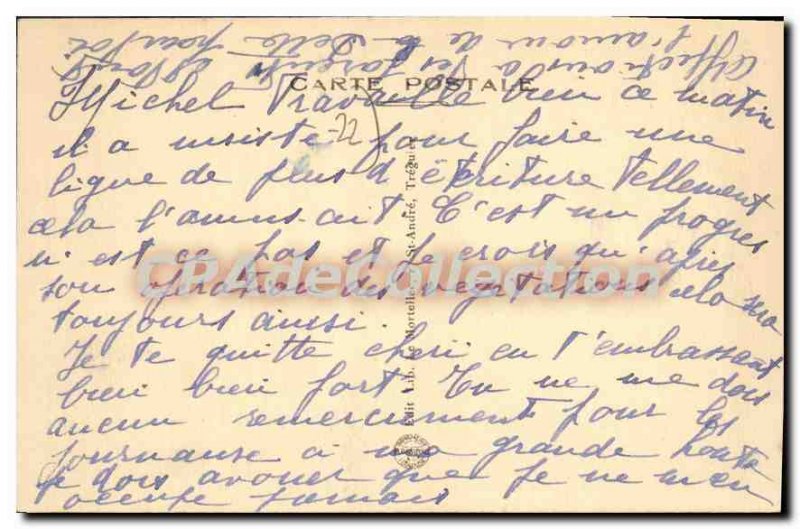 CARTE POSTALE
Michel travaille bien ce matin
il a insisté pour faire une
ligne de plus d'écriture tellement
cela l'amusait C'est un progrès
n'est ce pas et je crois qu'après
son opération des végétations cela sera
toujours ainsi.
Je te quitte chéri en t'embrassant
bien bien fort Tu ne me dois
aucun remerciement pour les
journaux à ma grande honte
je dois avouer que je ne m'en
occupe jamais
Affectionsa
l'amour de la
-22
Édit. Lib. Le Mortellec, St-André, Tréguier
CPAdeCollection